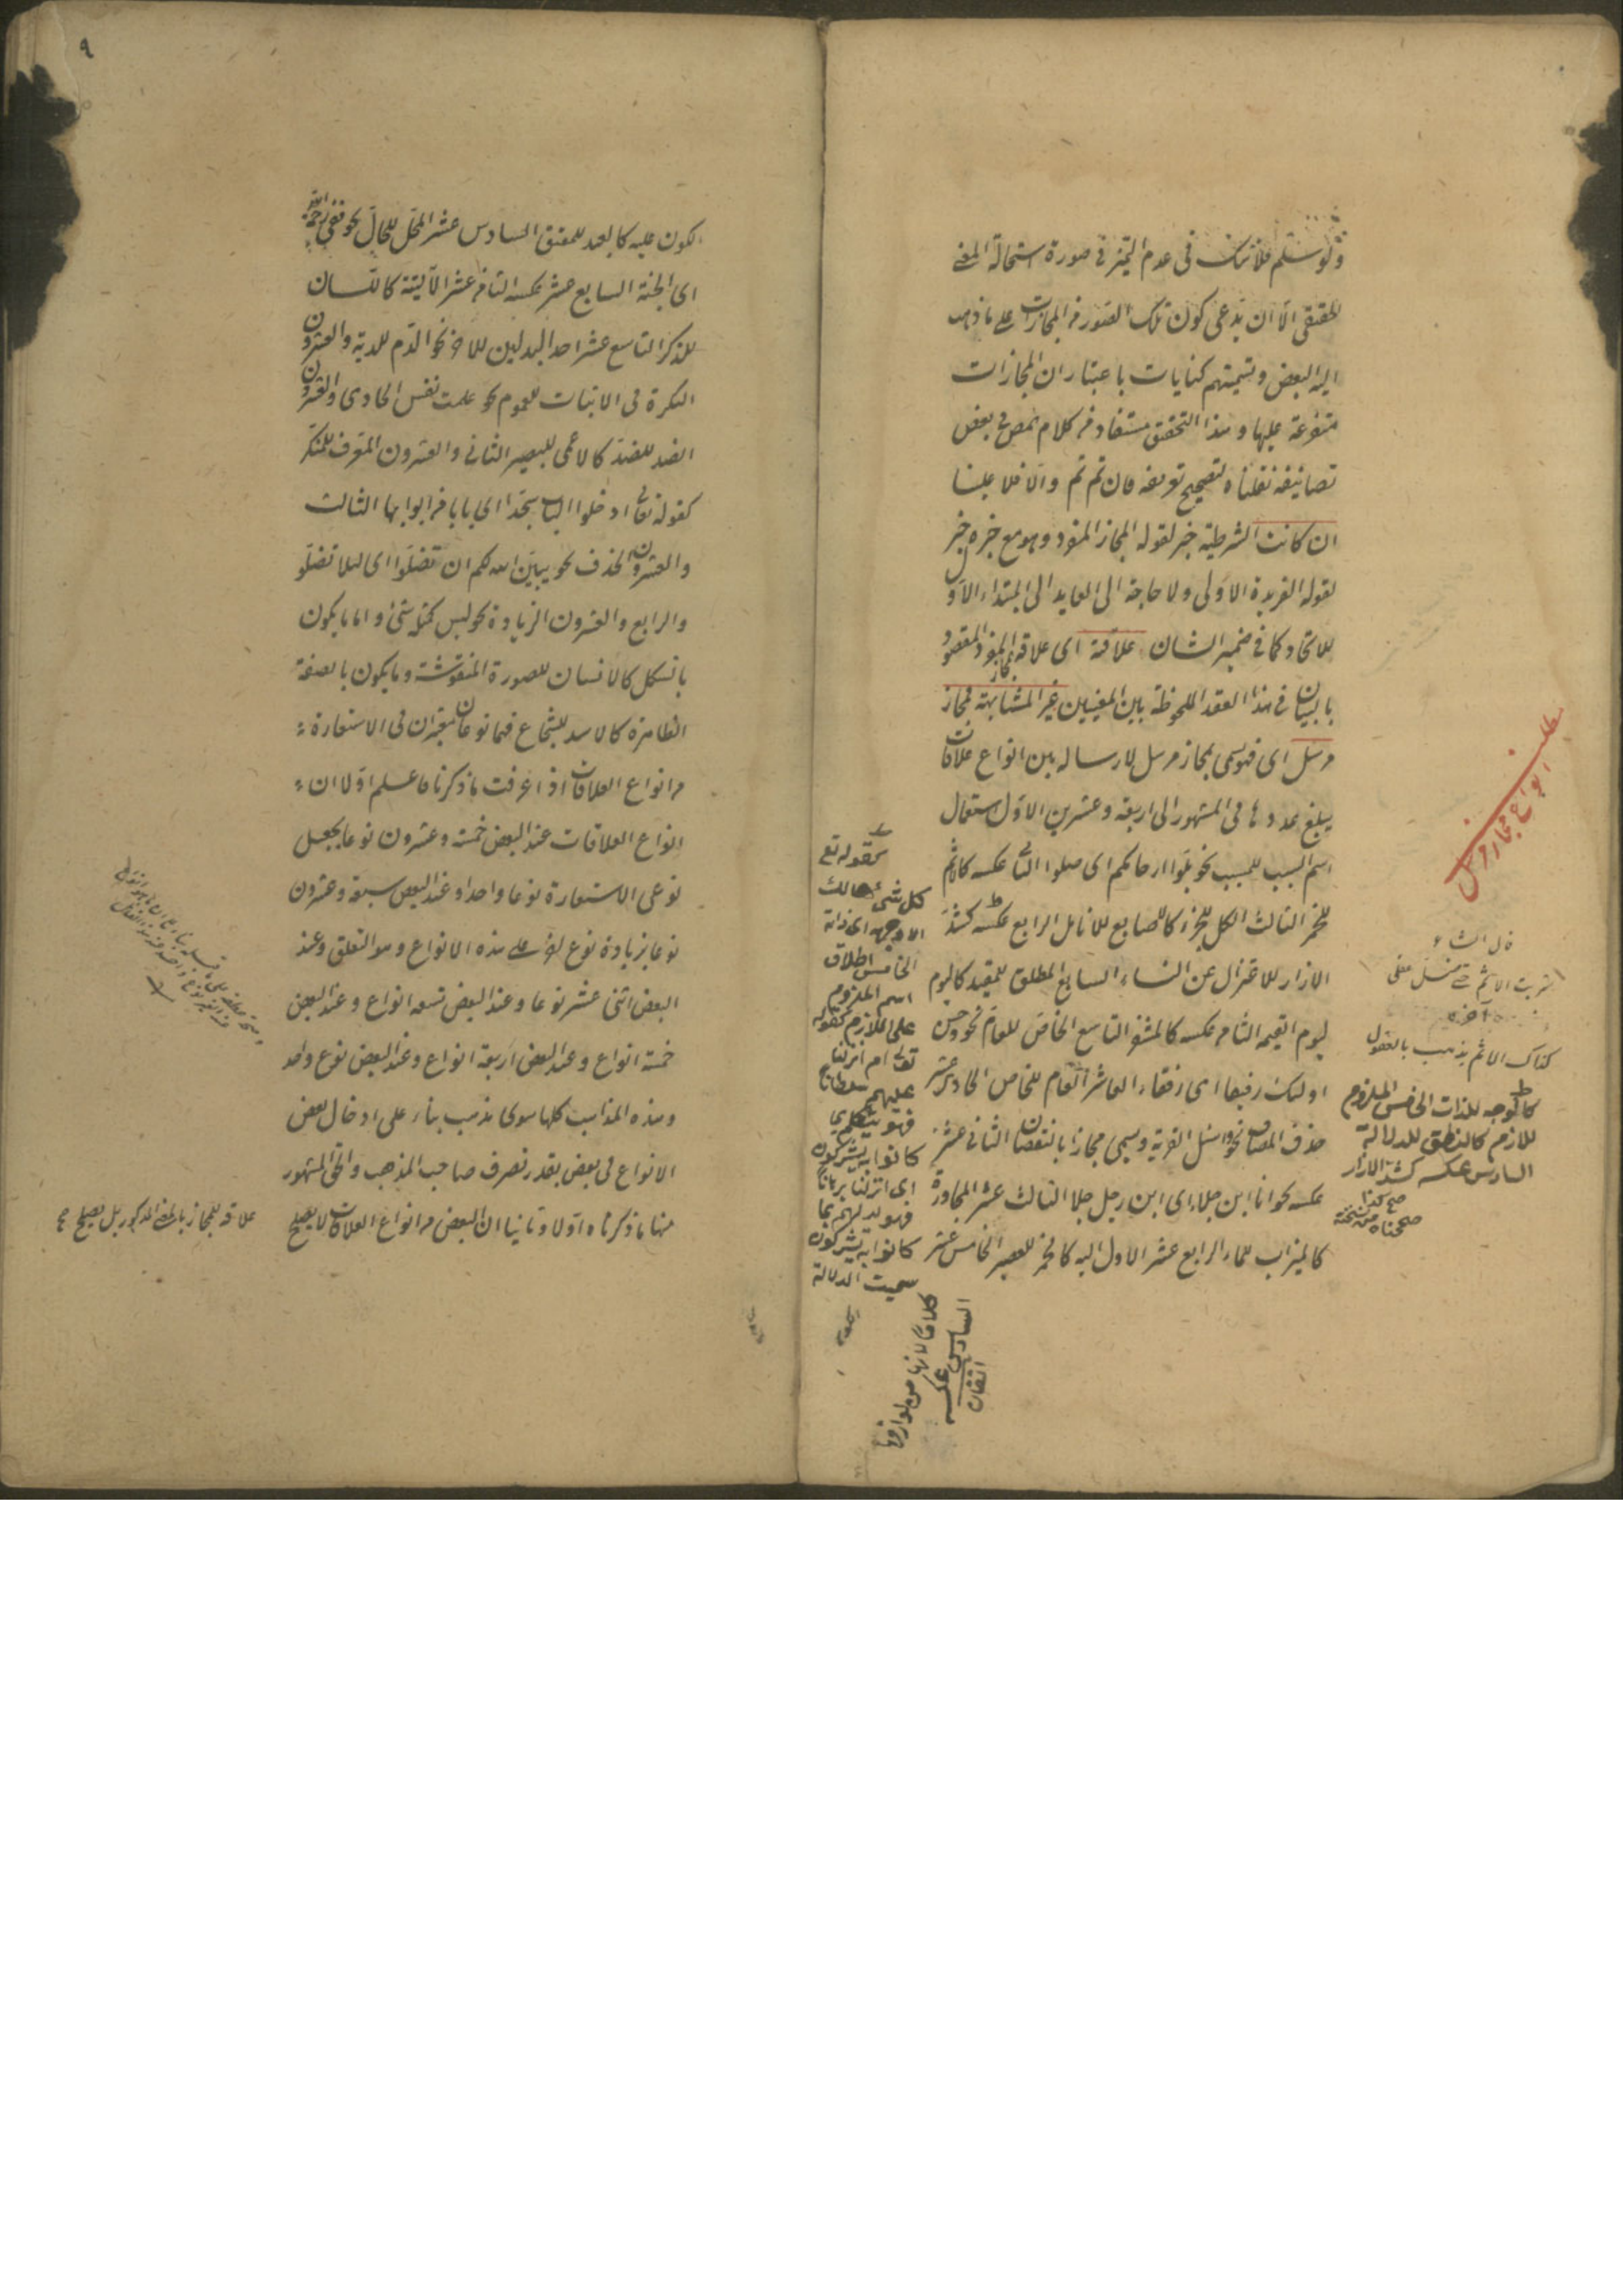 ولو سلم فلا شك فى عدم التميز فى صورة استحالة المعنى
الحقيقى الا ان يدعى كون تلك الصور من المجازات على ما ذهب
اليه البعض وتسميتهم كنايات باعتبار ان المجازات
متفرعة عليها وهذا التحقيق مستفاد من كلام المص فى بعض
تصانيفه نقلناه لتصحيح تعريفه فان تم تم والا فلا علينا
ان كانت الشرطية خبر لقوله المجاز المفرد وهو مع خبره خبر
لقوله الفريدة الاولى ولا حاجة الى العايد الى المبتداء الاول
للاتحاد كما فى ضمير الشان علاقة اى علاقة المجاز المفرد المقصود
بالبيان فى هذا العقد الملحوظة بين المعنيين غير المشابهة فمجاز
مرسل اى فهو يسمى بمجاز مرسل لارساله بين انواع علاقات
يبلغ عددها فى المشهور الى اربعة وعشرين الاول استعمال
اسم السبب للمسبب نحو بلوا ارحامكم اى صلوا الثانى عكسه كالاثم
للخمر الثالث الكل للجزء كالاصابع للانامل الرابع عكسه كشد
الازار للاعتزال عن النساء السابع المطلق للمقيد كاليوم
ليوم القيمة الثامن عكسه كالمشفر التاسع الخاص للعام نحو وحسن
اولئك رفيقا اى رفقاء العاشر العام للخاص الحادى عشر
حذف المضاف نحو واسئل القرية ويسمى مجازا بالنقصان الثانى عشر
عكسه نحو انا ابن جلا اى ابن رجل جلا الثالث عشر المجاورة
كالميزاب للماء الرابع عشر الاول اليه كالخمر للعصير الخامس عشر
مطلب
انواع مجاز مرسل
قال الشاعر
شربت الاثم حتى ضل عقلى
كذاك الاثم يذهب بالعقول
كالوجه للذات الخامس الملزوم
للازم كالنطق للدلالة
السادس عكسه كشد الازار
كقوله تع
كل شئ هالك
الا وجهه اى ذاته
الخامس اطلاق
اسم الملزوم
على اللازم كقوله
تعالى ام انزلنا
عليهم سلطانا
فهو يتكلم بما
كانوا به يشركون
اى انزلنا برهانا
فهو يدلهم بما
كانوا به يشركون
سميت الدلالة
كلاما لانها من لوازمها
السادس عكسه
اتقان
٩
الكون عليه كالعبد للمعتق السادس عشر المحل للحال نحو ففى رحمة الله
اى الجنة السابع عشر عكسه الثامن عشر الآلية كاللسان
للذكر التاسع عشر احد البدلين للاخر نحو الدم للدية والعشرون
النكرة فى الاثبات للعموم نحو علمت نفس الحادى والعشرون
الضد للضد كالاعمى للبصير الثانى والعشرون المعرف للمنكر
كقوله تعالى ادخلوا الباب سجدا اى بابا من ابوابها الثالث
والعشرون الحذف نحو يبين الله لكم ان تضلوا اى لئلا تضلوا
والرابع والعشرون الزيادة نحو ليس كمثله شئ واما ما يكون
بالشكل كالانسان للصورة المنقوشة وما يكون بالصفة
الظاهرة كالاسد للشجاع فهما نوعان معتبران فى الاستعارة
من انواع العلاقات اذا عرفت ما ذكرنا فاعلم اولا ان
انواع العلاقات عند البعض خمسة وعشرون نوعا بجعل
نوعى الاستعارة نوعا واحدا وعند البعض سبعة وعشرون
نوعا بزيادة نوع اخر على هذه الانواع وهو التعلق وعند
البعض اثنى عشر نوعا وعند البعض تسعة انواع وعند البعض
خمسة انواع وعند البعض اربعة انواع وعند البعض نوع واحد
وهذه المذاهب كلها سوى مذهب بناء على ادخال بعض
الانواع فى بعض بقدر تصرف صاحب المذهب والحق المشهور
منها ما ذكرناه اولا وثانيا ان البعض من انواع العلاقات لا يصلح
علاقة للمجاز بالمعنى المذكور بل يصلح